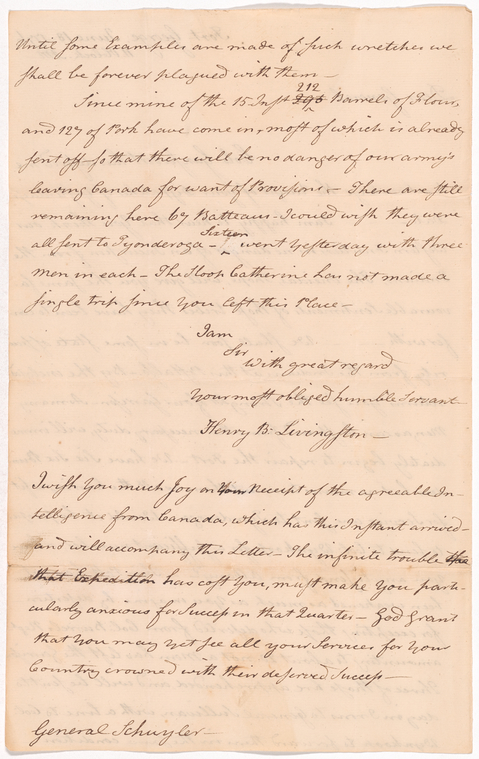 Until some Examples are made of such wretches we
shall be forever plagued with them –
Since mine of the 15 Inst 212 Barrels of Flour,
and 127 of Pork have come in, most of which is already
sent off – so that there will be no danger of our army's
leaving Canada for want of Provisions. – There are still
remaining here 67 Batteaus – I could wish they were
all sent to Tyonderoga – Sixteen went Yesterday with three
men in each – The Sloop Catherine has not made a
single trip since you left this Place –
I am
Sir
With great regard
Your most obliged humble Servant
Henry B. Livingston –
I wish You much Joy on Your Receipt of the agreeable In-
telligence from Canada, which has this Instant arrived –
and will accompany this Letter – The infinite trouble
that Expedition has cost You, must make You parti-
cularly anxious for Success in that Quarter – God Grant
that You may yet see all your Services for Your
Country crowned with their deserved Success –
General Schuyler –